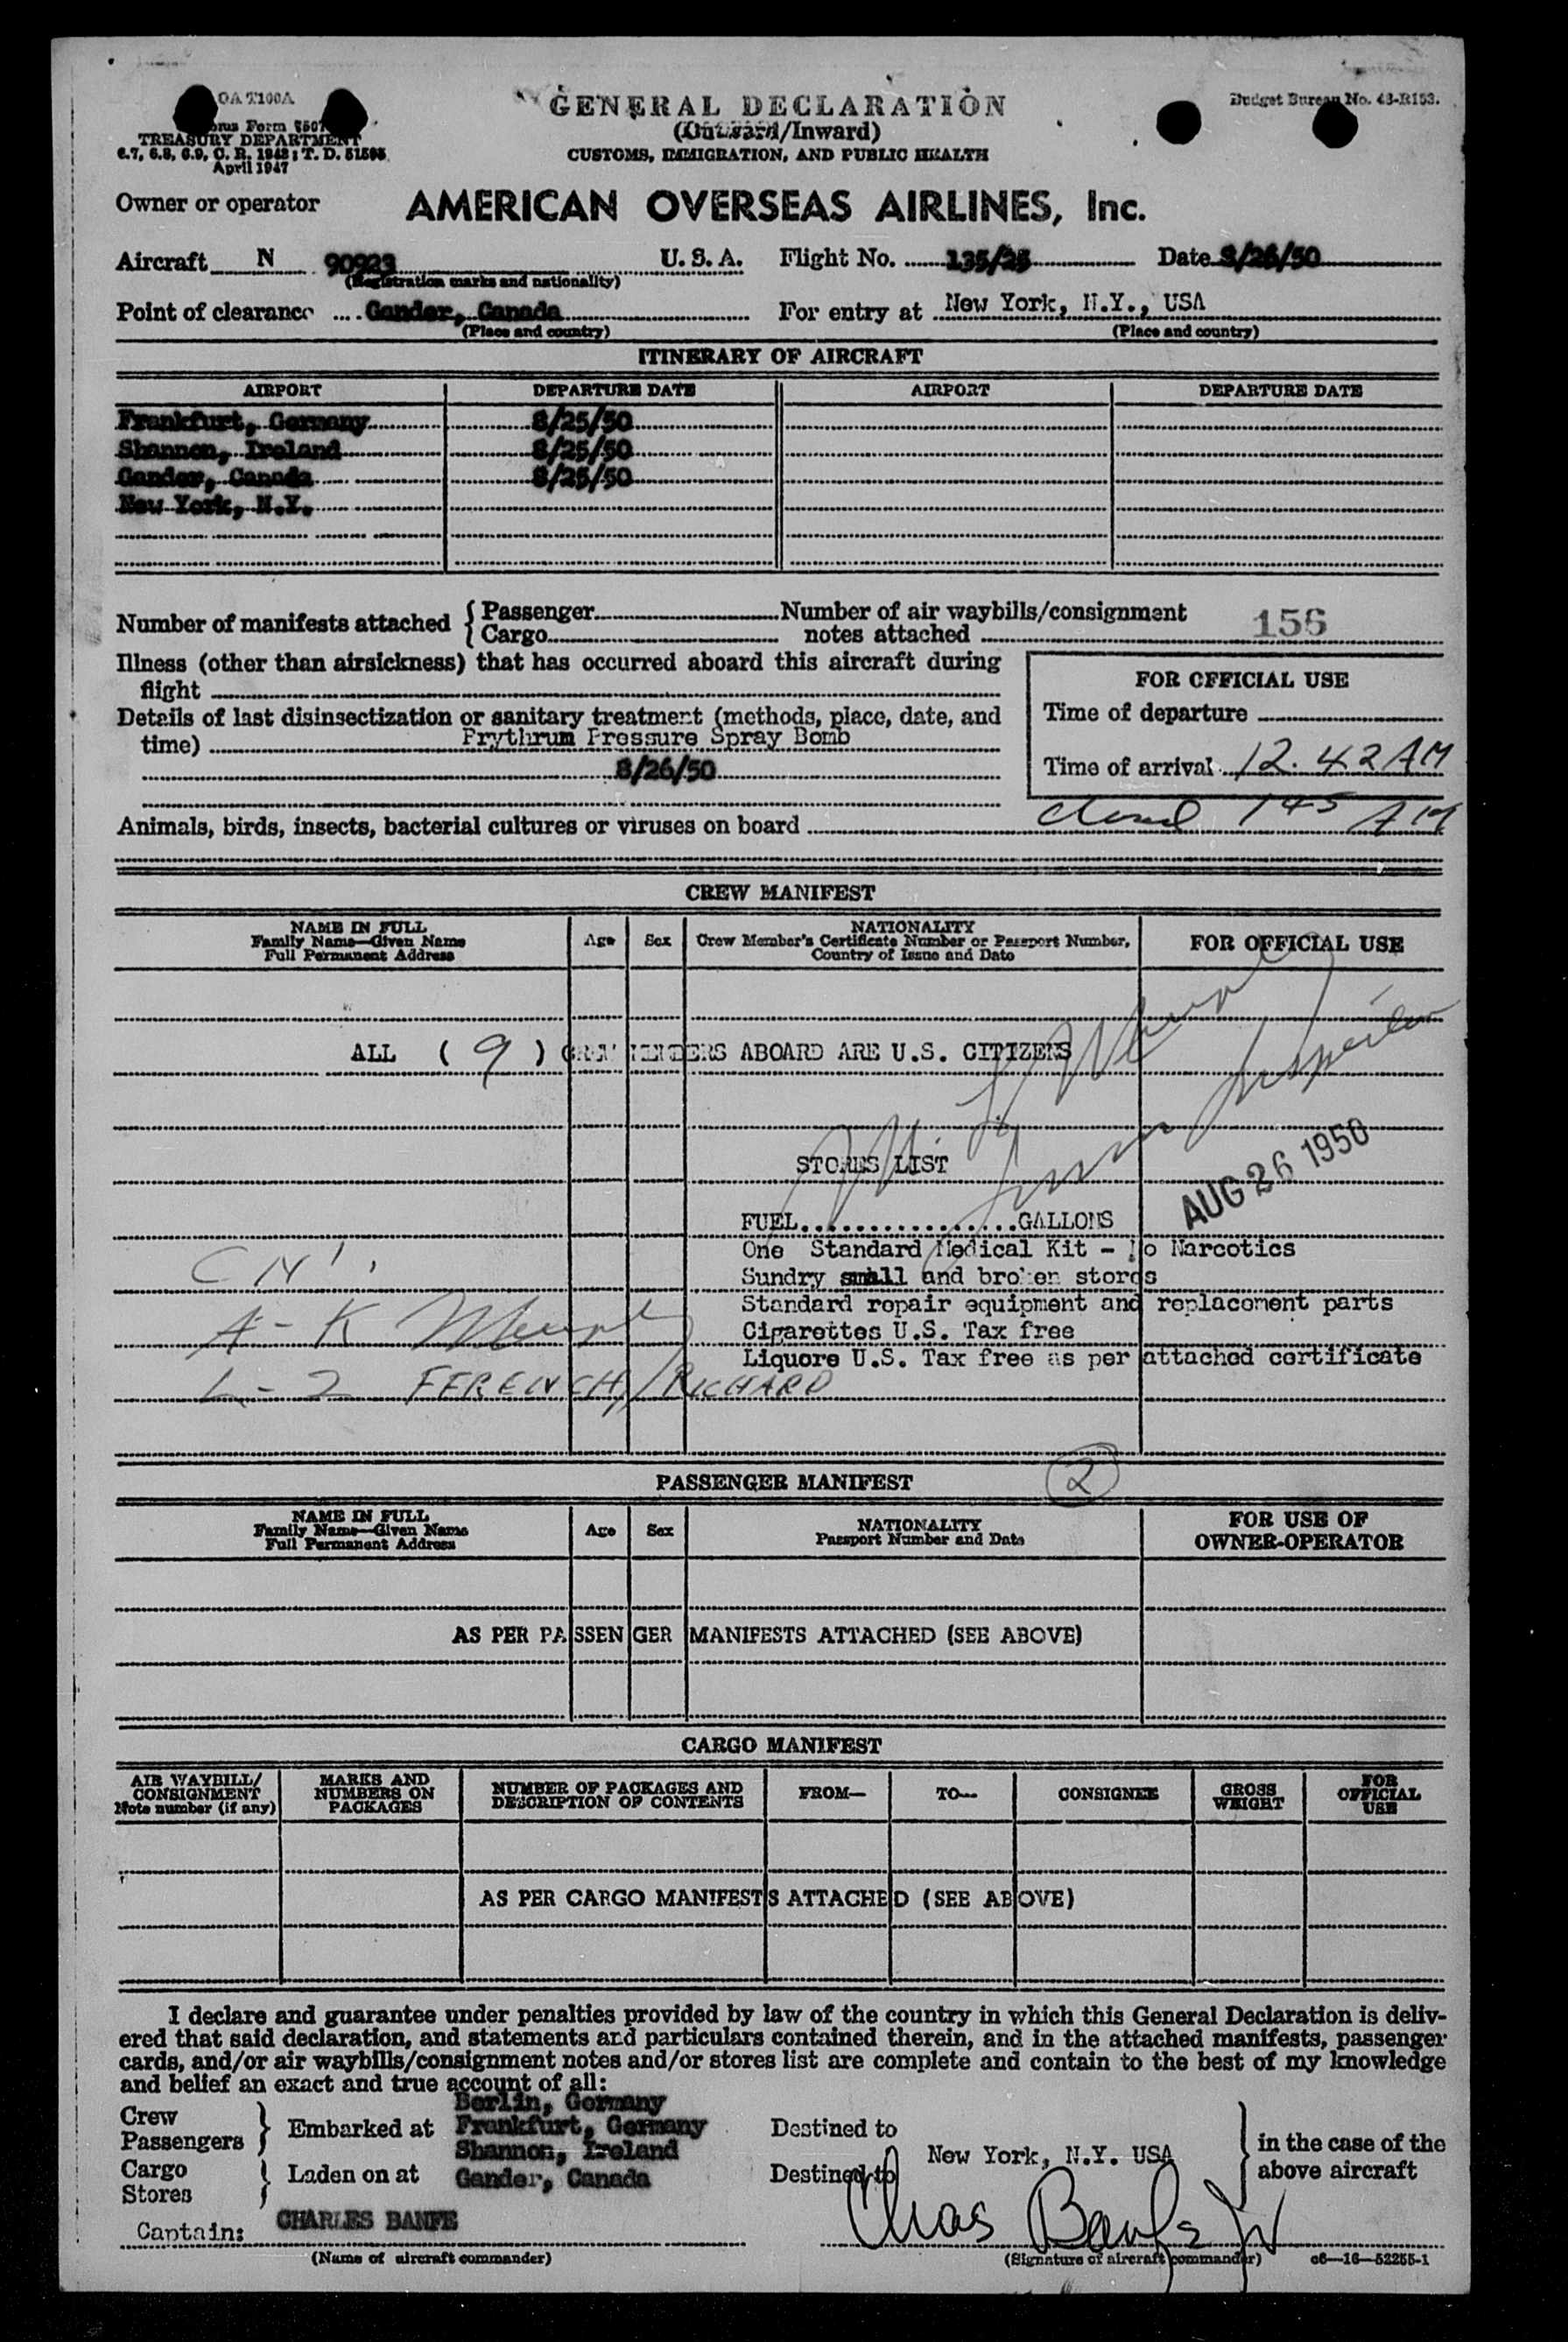 OA T100A
GENERAL DECLARATION
Budget Bureau No. 43-R153.
Form 7507
(Outward/Inward)
TREASURY DEPARTMENT
6.7, 6.8, 6.9, C. R. 1943; T. D. 51595
CUSTOMS, IMMIGRATION, AND PUBLIC HEALTH
April 1947
Owner or operator AMERICAN OVERSEAS AIRLINES, Inc.
Aircraft N 90923 U. S. A. Flight No. 135/25 Date 8/26/50
(Registration marks and nationality)
Point of clearance Gander, Canada For entry at New York, N.Y., USA
(Place and country) (Place and country)
ITINERARY OF AIRCRAFT
AIRPORT DEPARTURE DATE AIRPORT DEPARTURE DATE
Frankfurt, Germany 8/25/50
Shannon, Ireland 8/25/50
Gander, Canada 8/25/50
New York, N.Y.
Number of manifests attached { Passenger Number of air waybills/consignment
Cargo notes attached 156
Illness (other than airsickness) that has occurred aboard this aircraft during
flight
FOR OFFICIAL USE
Details of last disinsectization or sanitary treatment (methods, place, date, and
Time of departure
time) Prythrum Pressure Spray Bomb
8/26/50
Time of arrival 12.42 AM
Animals, birds, insects, bacterial cultures or viruses on board
145 AM
CREW MANIFEST
NAME IN FULL
Family Name—Given Name
Full Permanent Address
Age Sex
NATIONALITY
Crew Member's Certificate Number or Passport Number,
Country of Issue and Date
FOR OFFICIAL USE
ALL ( 9 ) CREW MEMBERS ABOARD ARE U.S. CITIZENS
Inspector
STORES LIST
AUG 26 1950
FUEL................GALLONS
One Standard Medical Kit - No Narcotics
Sundry small and broken stores
Standard repair equipment and replacement parts
Cigarettes U.S. Tax free
Liquore U.S. Tax free as per attached certificate
A - K
L - Z FERENCH, RICHARD
2
PASSENGER MANIFEST
NAME IN FULL
Family Name—Given Name
Full Permanent Address
Age Sex
NATIONALITY
Passport Number and Date
FOR USE OF
OWNER-OPERATOR
AS PER PASSENGER MANIFESTS ATTACHED (SEE ABOVE)
CARGO MANIFEST
AIR WAYBILL/
CONSIGNMENT
Note number (if any)
MARKS AND
NUMBERS ON
PACKAGES
NUMBER OF PACKAGES AND
DESCRIPTION OF CONTENTS
FROM— TO— CONSIGNEE
GROSS
WEIGHT
FOR
OFFICIAL
USE
AS PER CARGO MANIFESTS ATTACHED (SEE ABOVE)
I declare and guarantee under penalties provided by law of the country in which this General Declaration is deliv-
ered that said declaration, and statements and particulars contained therein, and in the attached manifests, passenger
cards, and/or air waybills/consignment notes and/or stores list are complete and contain to the best of my knowledge
and belief an exact and true account of all:
Berlin, Germany
Crew
Passengers } Embarked at Frankfurt, Germany Destined to
Shannon, Ireland
New York, N.Y. USA
in the case of the
above aircraft
Cargo
Stores } Laden on at Gander, Canada Destined to
Captain: CHARLES BANFE Chas Banfe Jr
(Name of aircraft commander) (Signature of aircraft commander) c6—16—52255-1